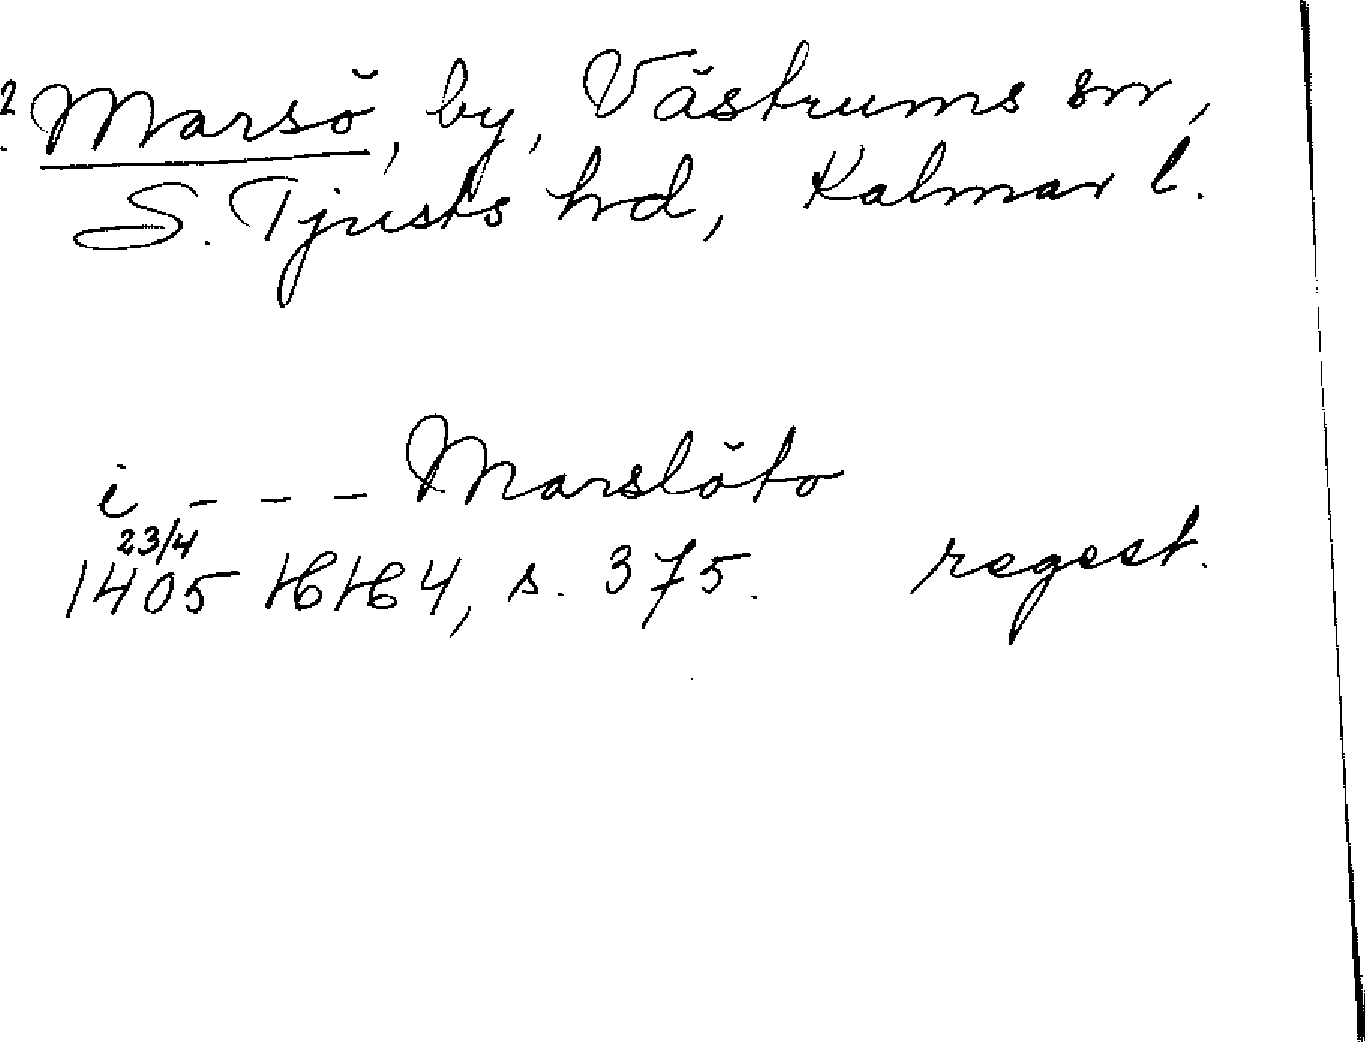 2 Marsö, by, Västrums sn,
S. Tjusts hd, Kalmar l.
i - - - Marslöto
23/4
1405 HH 4, s. 375. regest.